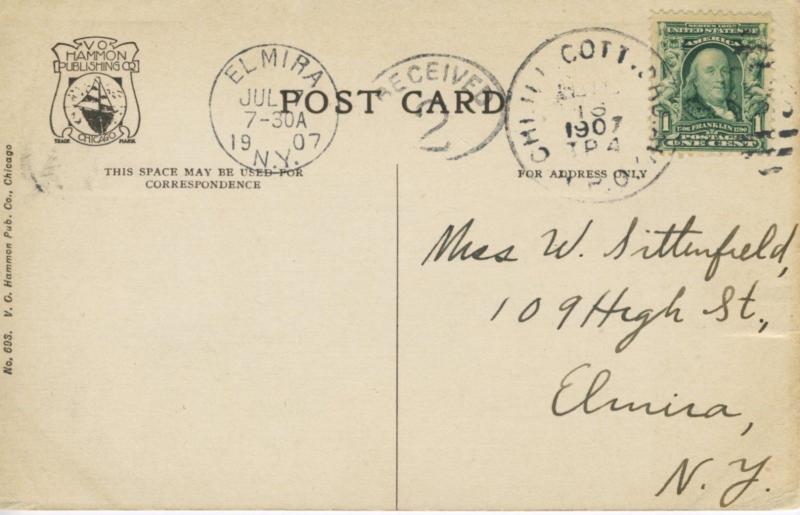 V.O.
HAMMON
PUBLISHING CO
CHICAGO
TRADE MARK
ELMIRA
JUL
7-30A
19 07
N.Y.
RECEIVED
2
POST CARD
COTT.
16
1907
TR 4
R.P.O.
SERIES 1902
UNITED STATES OF
AMERICA
1 FRANKLIN 1
POSTAGE
ONE CENT
THIS SPACE MAY BE USED FOR
CORRESPONDENCE
FOR ADDRESS ONLY
No. 693. V. O. Hammon Pub. Co., Chicago
Miss W. Sittenfield,
109 High St.,
Elmira,
N.Y.